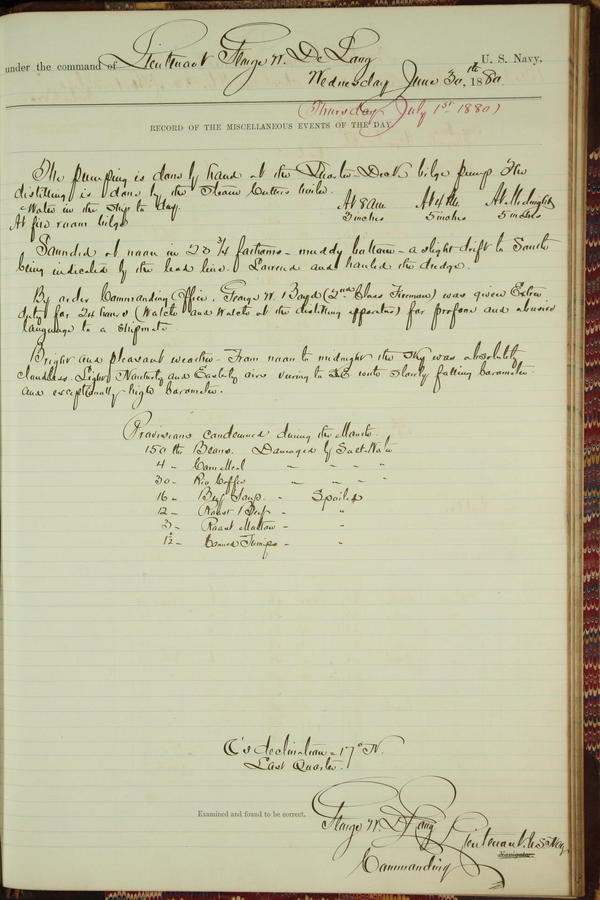 under the command of Lieutenant George W. De Long U. S. Navy,
Wednesday June 30th, 1880
(Thursday July 1st 1880)
RECORD OF THE MISCELLANEOUS EVENTS OF THE DAY.
The pumping is done by hand at the Quarter Deck bilge pump. The
distilling is done by the Steam Cutters boiler.
Water in the Ship to day. At 8 am At 4 PM At Midnight
At fire room bilge 3 inches 5 inches 5 inches
Sounded at noon in 23 ¾ fathoms - muddy bottom - a slight drift to South
being indicated by the lead line. Lowered and hauled the dredge.
By order Commanding Officer, George W. Boyd (2nd Class Fireman) was given Extra
duty for 24 hours (Watch and Watch at the distilling apparatus) for profane and abusive
language to a shipmate.
Bright and pleasant weather - From noon to midnight the sky was absolutely
cloudless. Light Northerly and Easterly airs veering to SE with slowly falling barometer
and exceptionally high barometer.
Provisions condemned during the Month.
150 lbs Beans. Damaged by Salt-Water
4 " Corn Meal " " "
30 " Rio Coffee " " "
16 " Beef Soup. - Spoiled
12 " Roast Beef - "
3 " Roast Mutton - "
12 " Canned Turnips - "
☾'s declination - 17° N.
Last Quarter.
Examined and found to be correct.
George W. De Long Lieutenant U.S. Navy
Navigator.
Commanding